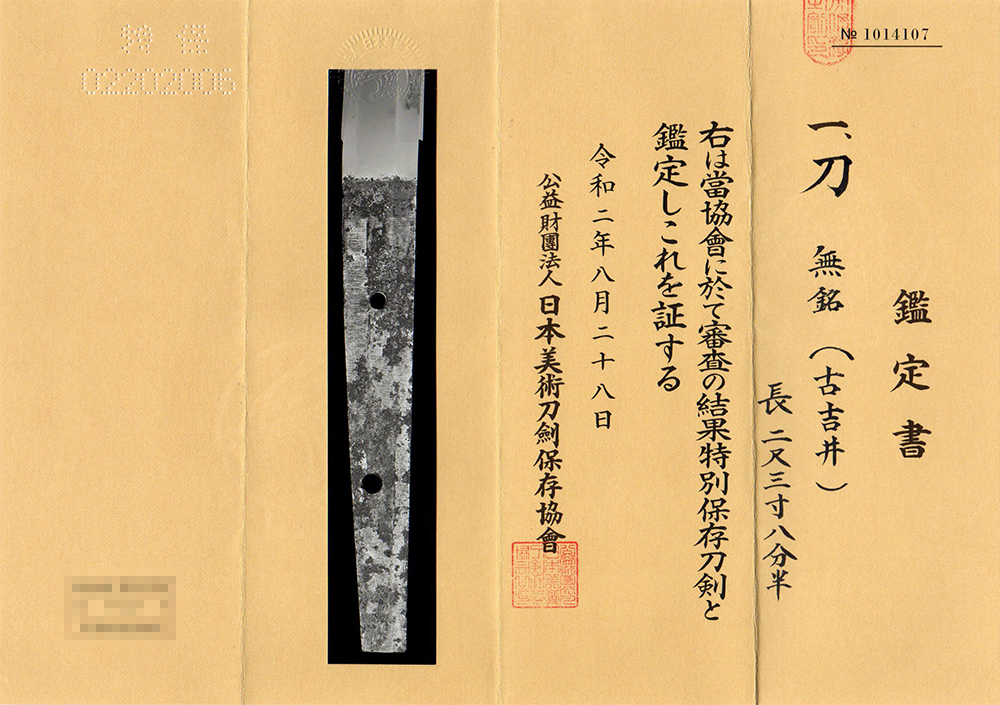 № 1014107
鑑定書
一、刀 無銘（古吉井）
長 二尺三寸八分半
右は當協會に於て審査の結果特別保存刀剣と
鑑定しこれを証する
令和二年八月二十八日
公益財團法人 日本美術刀劍保存協會
特保
02202006